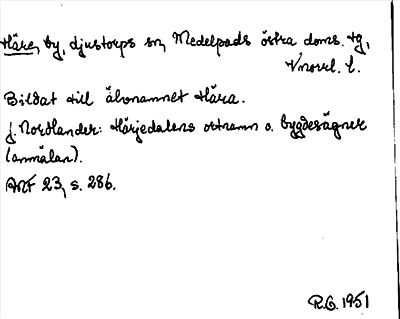 Häre, by, Ljustorps sn, Medelpads östra doms. tg,
Vnorrl. l.
Bildat till älvnamnet Hära.
J. Nordlander: Härjedalens ortnamn o. bygdesägner
(anmälan).
ANF 23, s. 286.
R.G. 1951